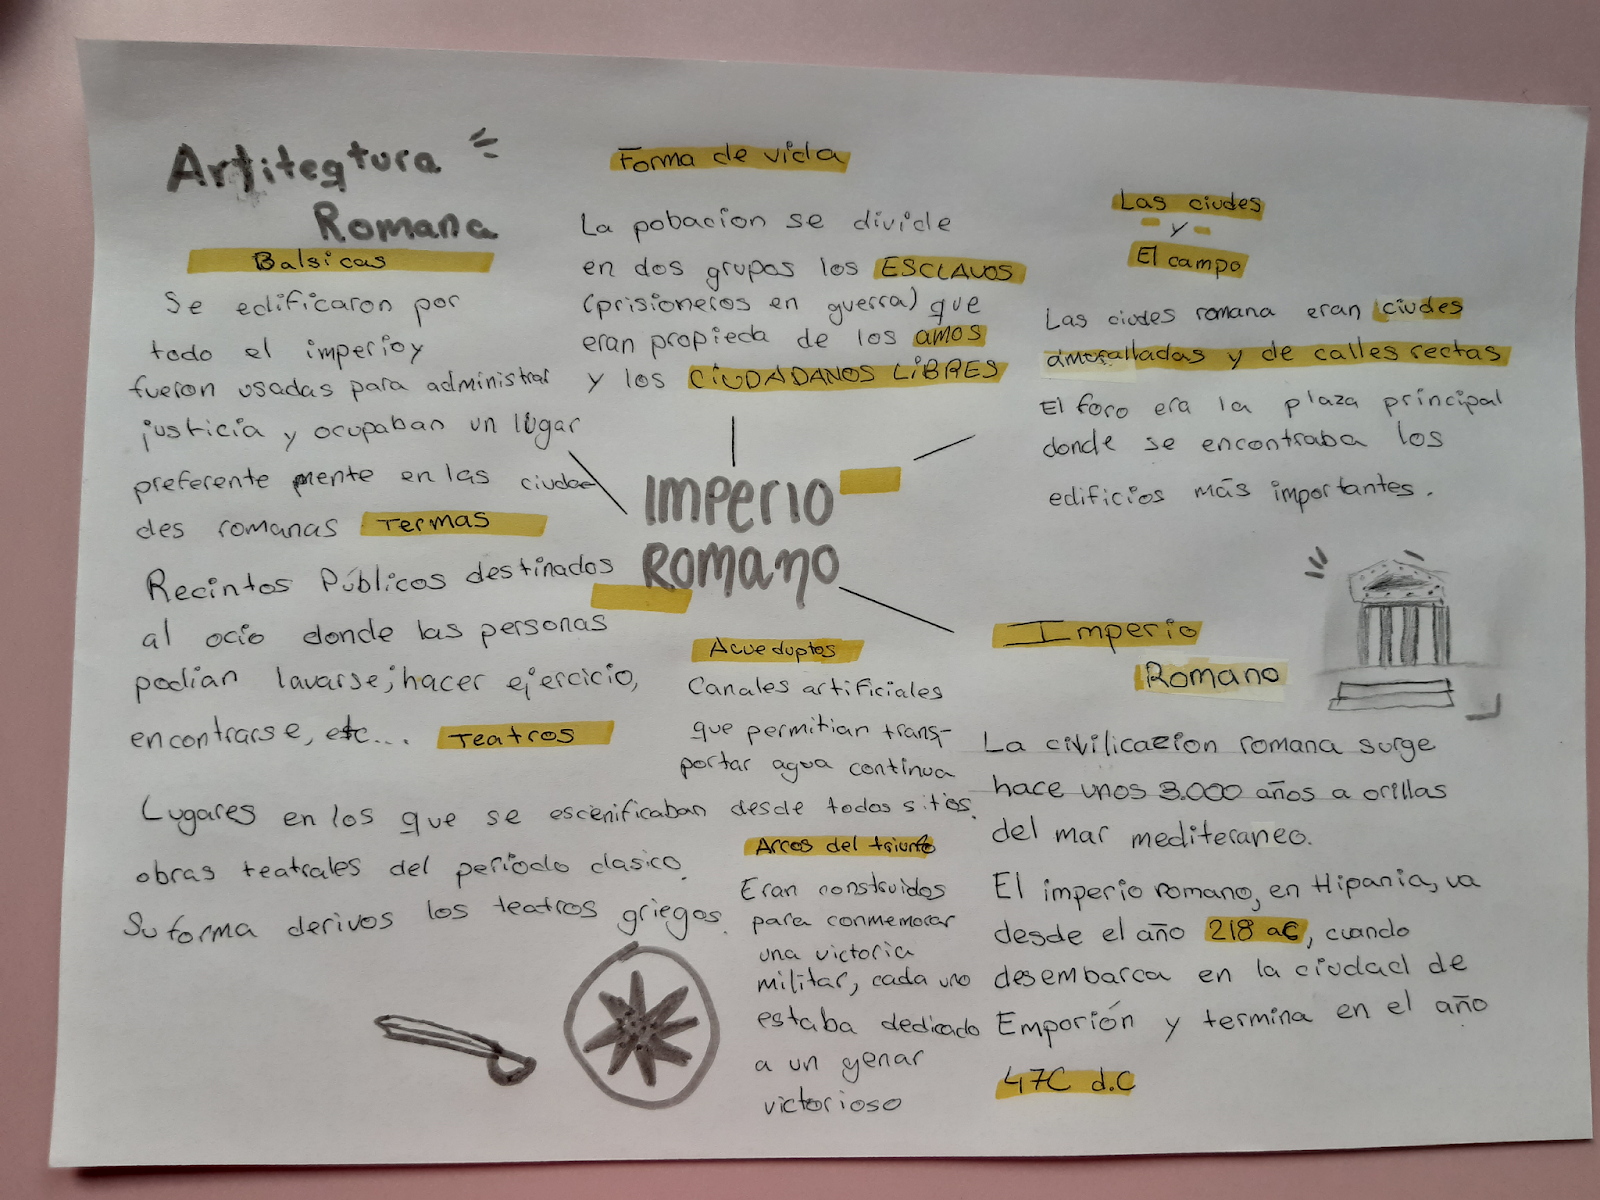 Artiteqtura
Romana
Balsicas
Se edificaron por
todo el imperioy
fueron usadas para administrar
justicia y ocupaban un lugar
preferente mente en las ciuda
des romanas Termas
Recintos Públicos destinados
al ocio donde las personas
podian lavarse, hacer ejercicio,
encontrarse, etc... Teatros
Lugares en los que se escenificaban desde todos sitios.
obras teatrales del periodo clasico.
Su forma derivos los teatros griegos.
Forma de vida
La pobacion se divide
en dos grupos los ESCLAVOS
(prisioneros en guerra) que
eran propieda de los amos
y los CIUDADANOS LIBRES
IMPERIO
ROMANO
Las ciudes
y
El campo
Las ciudes romana eran ciudes
amuralladas y de calles rectas
El foro era la plaza principal
donde se encontraba los
edificios más importantes.
Acueduptos
Canales artificiales
que permitian trans-
portar agua continua
Arcos del triunfo
Eran construidos
para conmemorar
una victoria
militar, cada uno
estaba dedicado
a un genar
victorioso
Imperio
Romano
La civilicazion romana surge
hace unos 3.000 años a orillas
del mar mediteraneo.
El imperio romano, en Hipania, va
desde el año 218 aC, cuando
desembarca en la ciudad de
Emporión y termina en el año
47C d.C